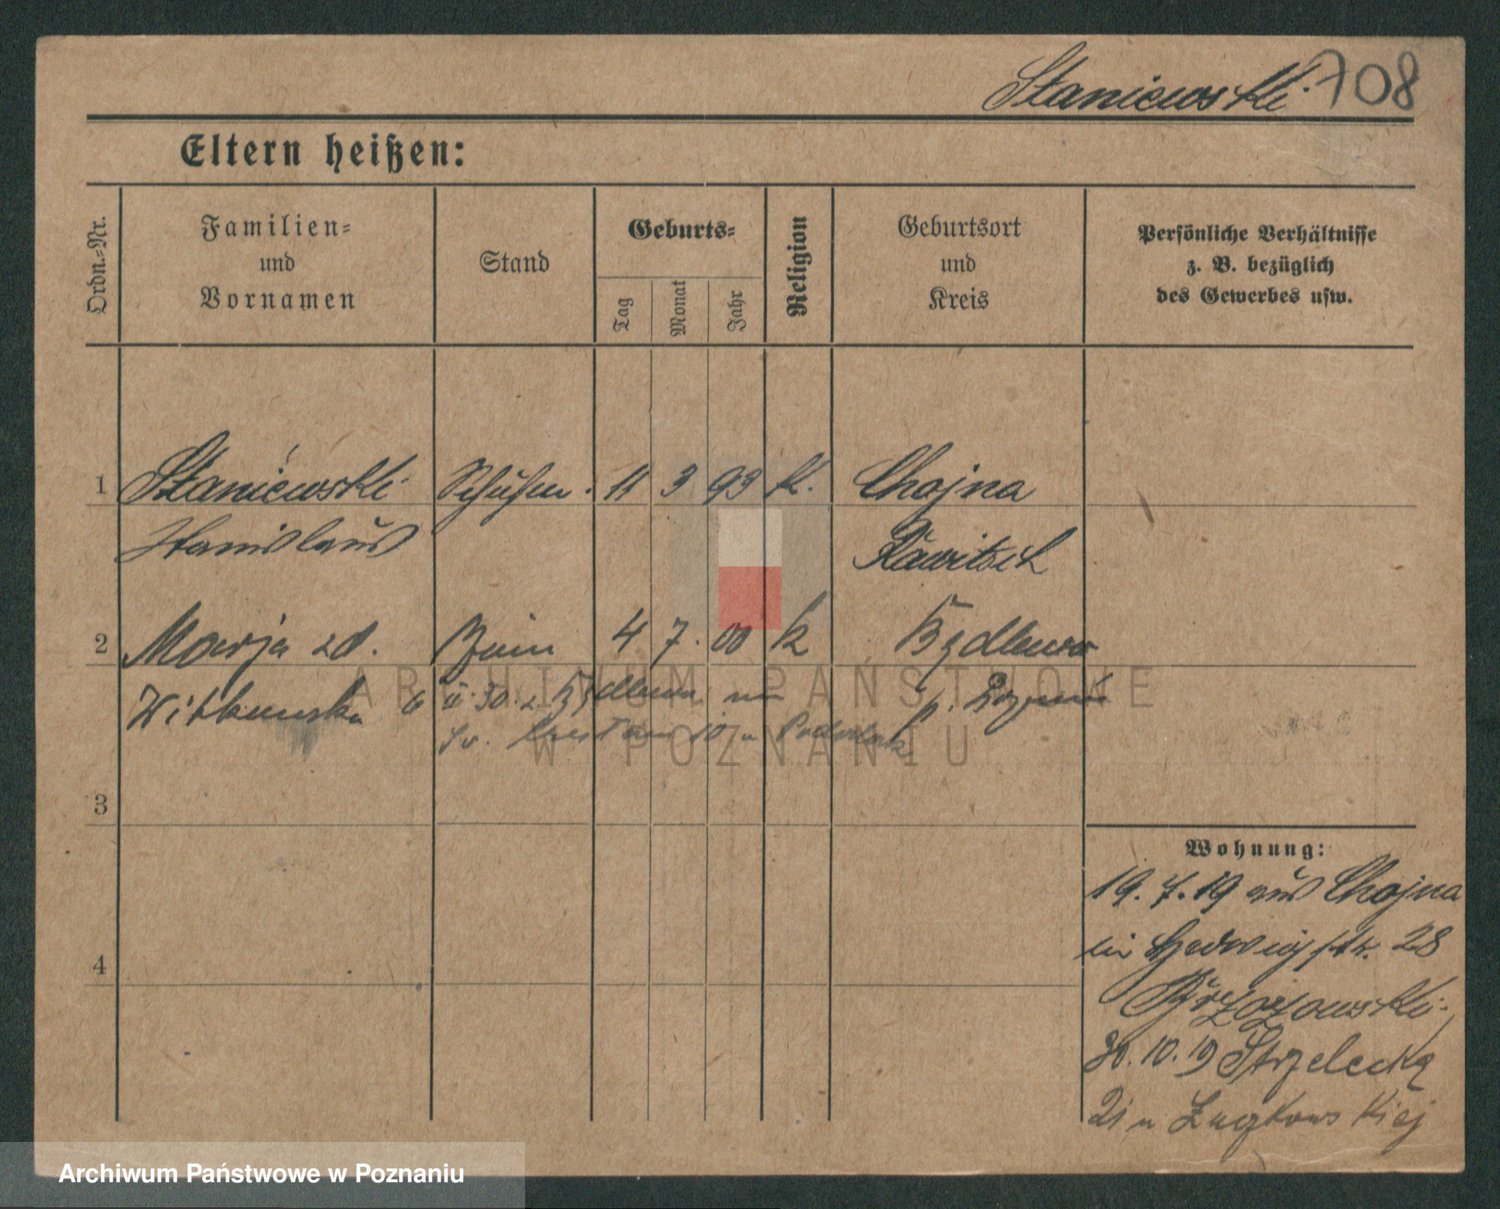 Staniewski 708
Eltern heißen:
Ordn.-Nr.
Familien-
und
Vornamen
Stand
Geburts-
Tag
Monat
Jahr
Religion
Geburtsort
und
Kreis
Persönliche Verhältnisse
z. B. bezüglich
des Gewerbes usw.
1 Staniewski Schuhm. 11 3 93 K. Chojna
Stanislaus Rawitsch
2 Marja zd. 4 7. 00 k
Witkowska
p. Poznań
3
4
Wohnung:
19. 7. 19 aus Chojna
in Hedwigstr. 28
Brzozowski
30. 10. 19 Strzelecka
21 u
ARCHIWUM PAŃSTWOWE
W POZNANIU
Archiwum Państwowe w Poznaniu